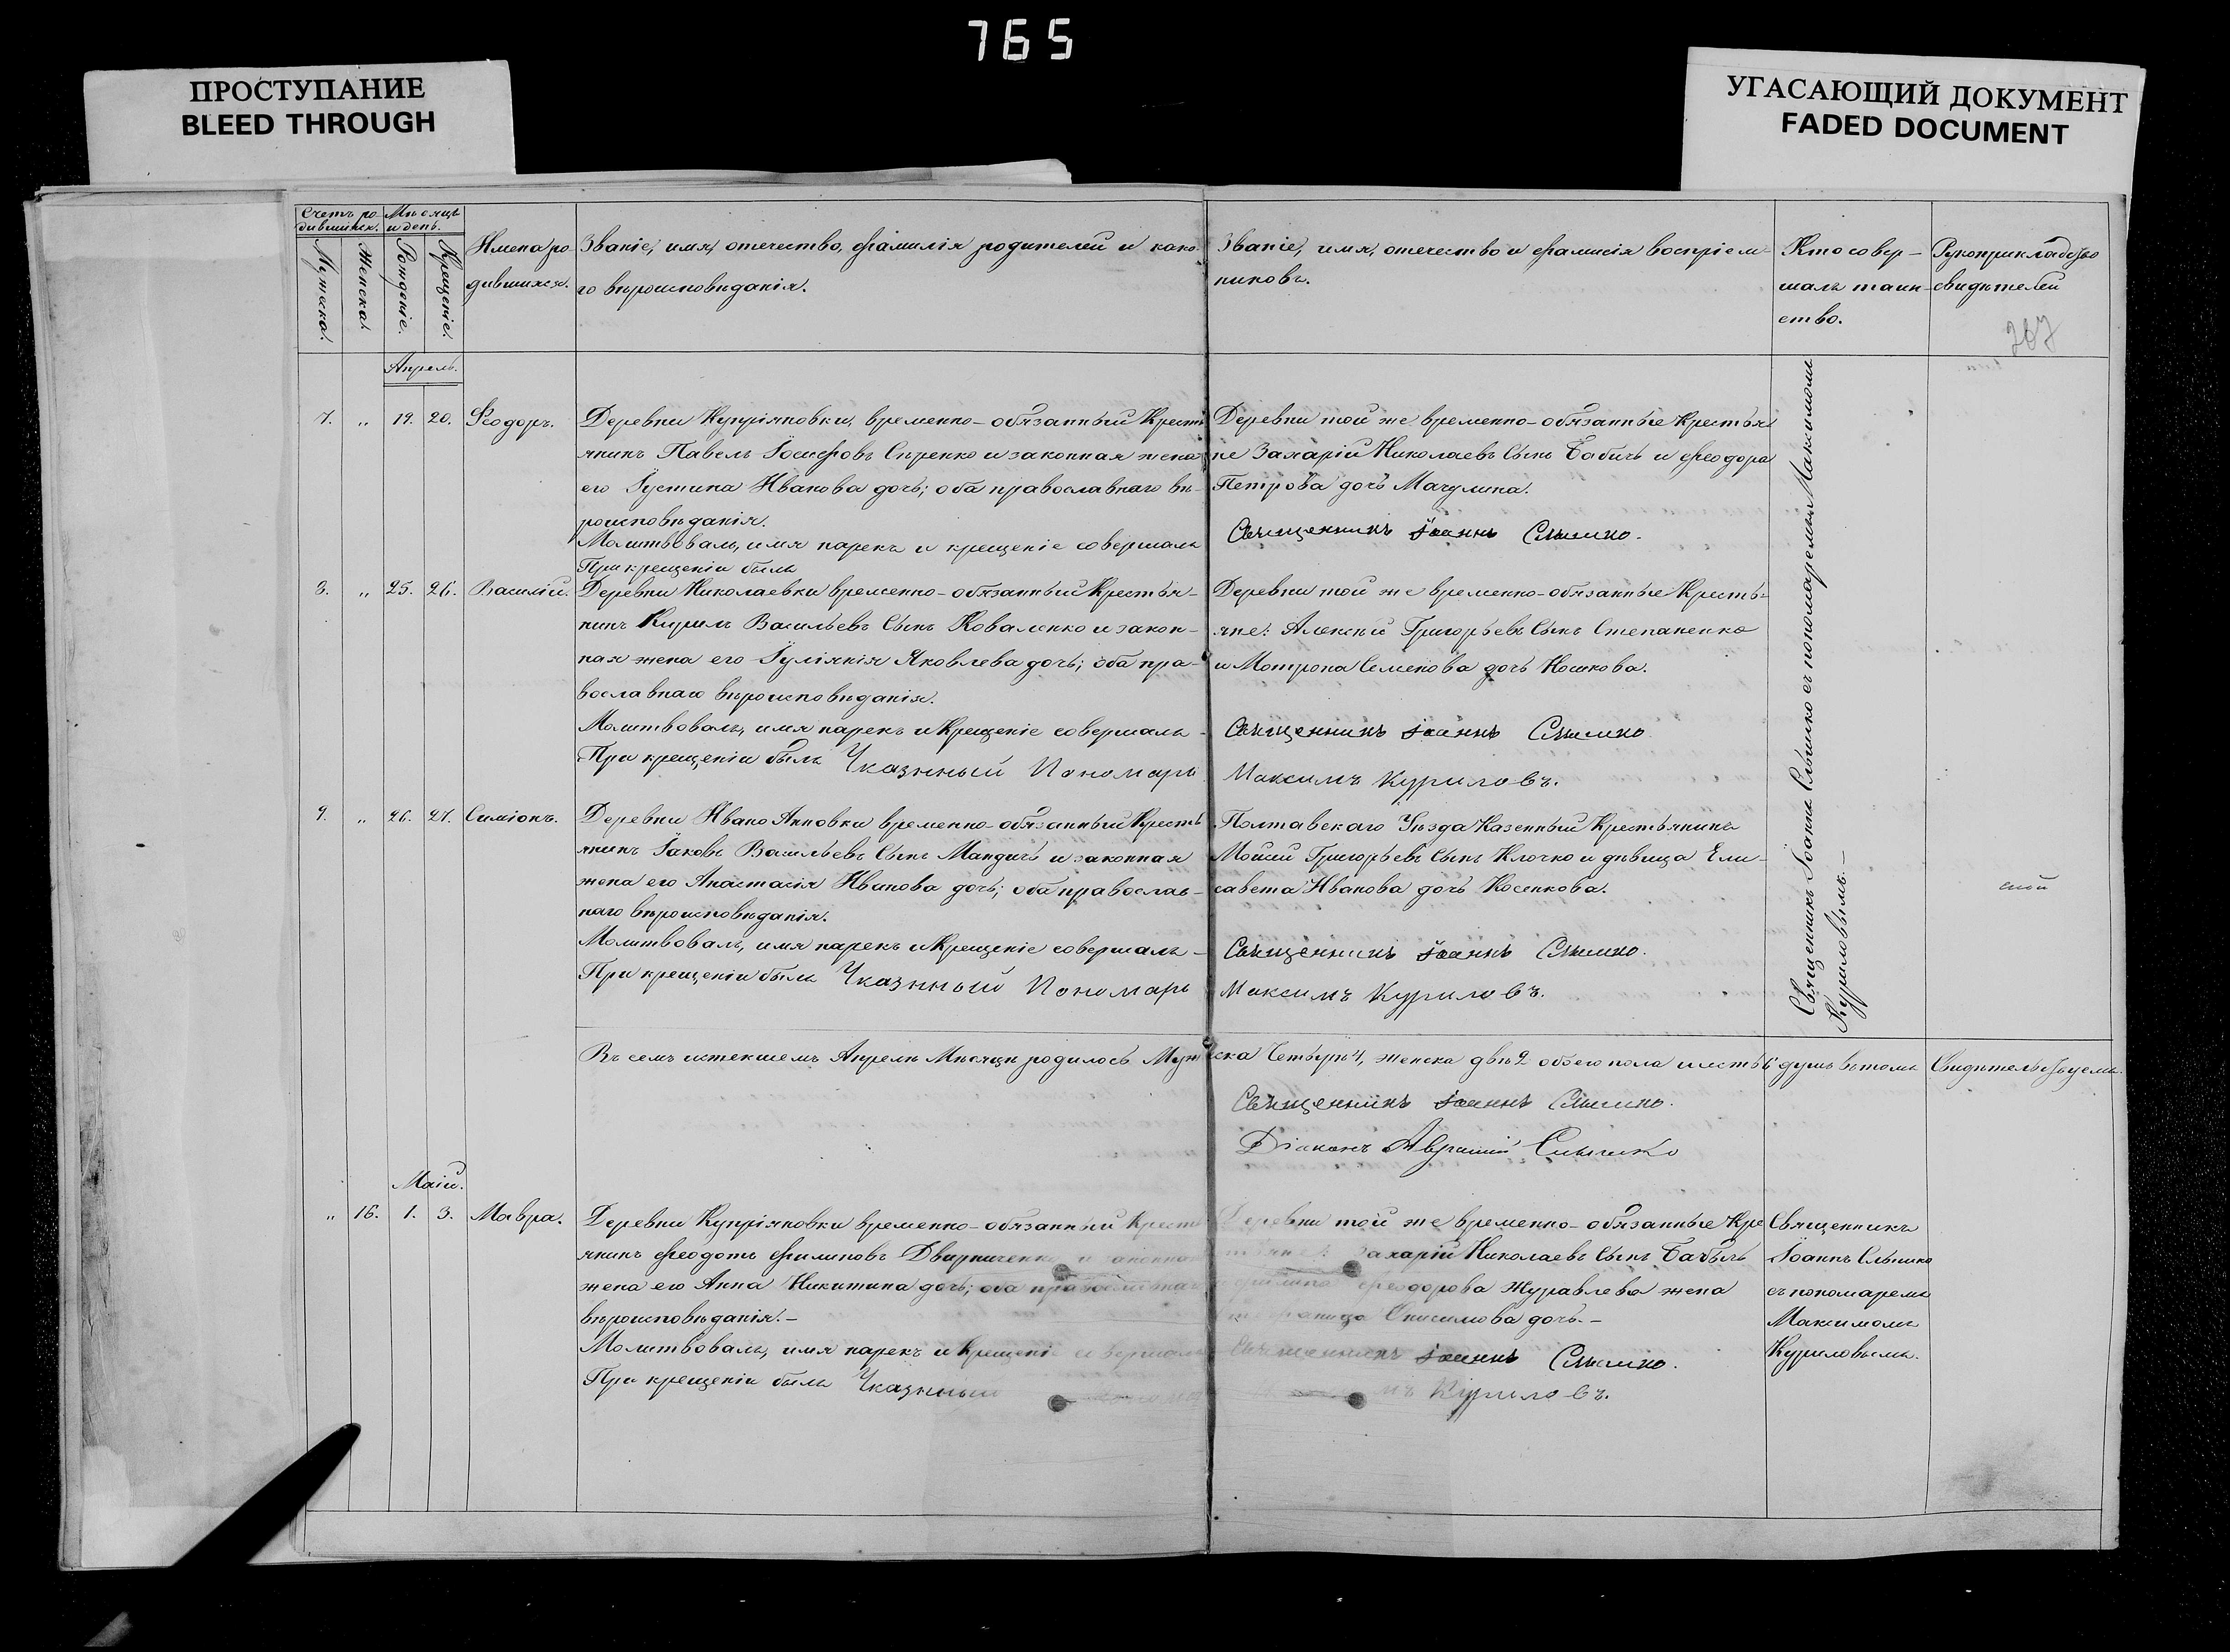 765
ПРОСТУПАНИЕ
BLEED THROUGH
УГАСАЮЩИЙ ДОКУМЕНТ
FADED DOCUMENT
Счетъ ро-
дившихся.
Мѣсяцъ
и день.
Мужеска.
Женска.
Рожденіе.
Крещеніе.
Имена ро-
дившихся.
Званіе, имя, отечество, фамилія родителей и како-
го вѣроисповѣданія.
Званіе, имя, отечество и фамилія воспріем-
никовъ.
Кто совер-
шалъ таин-
ство.
Рукоприкладство
свидѣтелей
Апрель.
7. „ 19. 20. Ѳеодоръ.
Деревни Купріяновки, временно-обязанный Кресть
янинъ Павелъ Іосифовъ Сѣренко и законная жена
его Іустина Иванова дочь; оба православнаго вѣ-
роисповѣданія.
Молитвовалъ, имя нарекъ и крещеніе совершалъ
При крещеніи былъ
Деревни той же временно-обязанные Крестья
не Захарій Николаевъ Сынъ Бабичъ и Феодора
Петрова дочь Мачулина.
Священникъ Іоаннъ Слышко.
8. „ 25. 26. Василій.
Деревни Николаевки временно-обязанный Крестья-
нинъ Курилъ Васильевъ Сынъ Коваленко и закон-
ная жена его Іуліянія Яковлева дочь; оба пра-
вославнаго вѣроисповѣданія.
Молитвовалъ, имя нарекъ и Крещеніе совершалъ
При крещеніи былъ Указнный Пономарь
Деревни той же временно-обязанные Кресть-
яне: Алексѣй Григорьевъ Сынъ Степаненко
и Мотрона Семенова дочь Кошкова.
Священникъ Іоаннъ Слышко
Максимъ Куриловъ.
9. „ 26. 27. Симіонъ.
Деревни Ивано Анновки временно-обязанный Кресть
янинъ Іаковъ Васильевъ Сынъ Мандичъ и законная
жена его Анастасія Иванова дочь; оба православ-
наго вѣроисповѣданія.
Молитвовалъ, имя нарекъ и Крещеніе совершалъ -
При крещеніи былъ Указнный Пономарь
Полтавскаго Уѣзда Казенный Крестьянинъ
Мойсей Григорьевъ Сынъ Клочко и дѣвица Ели-
савета Иванова дочь Косенкова.
Священникъ Іоаннъ Слышко.
Максимъ Куриловъ.
Священникъ Іоаннъ Слышко съ пономаремъ Максимомъ
Куриловымъ.-
Въ семъ истекшемъ Апрелѣ Мѣсяцѣ родилось Муж ска Четыре 4, женска двѣ 2 обоего пола шесть 6 душъ въ томъ Свидѣтельствуемъ.
Священникъ Іоаннъ Слышко.
Діаконъ Слышко
Маій.
„ 16. 1. 3. Мавра.
Деревни Купріяновки временно-обязанный Кресть
янинъ Феодотъ Филиповъ Дварниченко и
жена его Анна Никитина дочь; оба
вѣроисповѣданія.-
Молитвовалъ, имя нарекъ и Крещеніе совершалъ
При крещеніи былъ Указнный
Деревни той же временно-обязанные Кре
Захарій Николаевъ Сынъ Бабичъ
Феодорова Журавлева жена
Онисимова дочь.-
Священникъ Іоаннъ Слышко.
Куриловъ.
Священникъ
Іоаннъ Слышко
съ пономаремъ
Максимомъ
Куриловымъ.